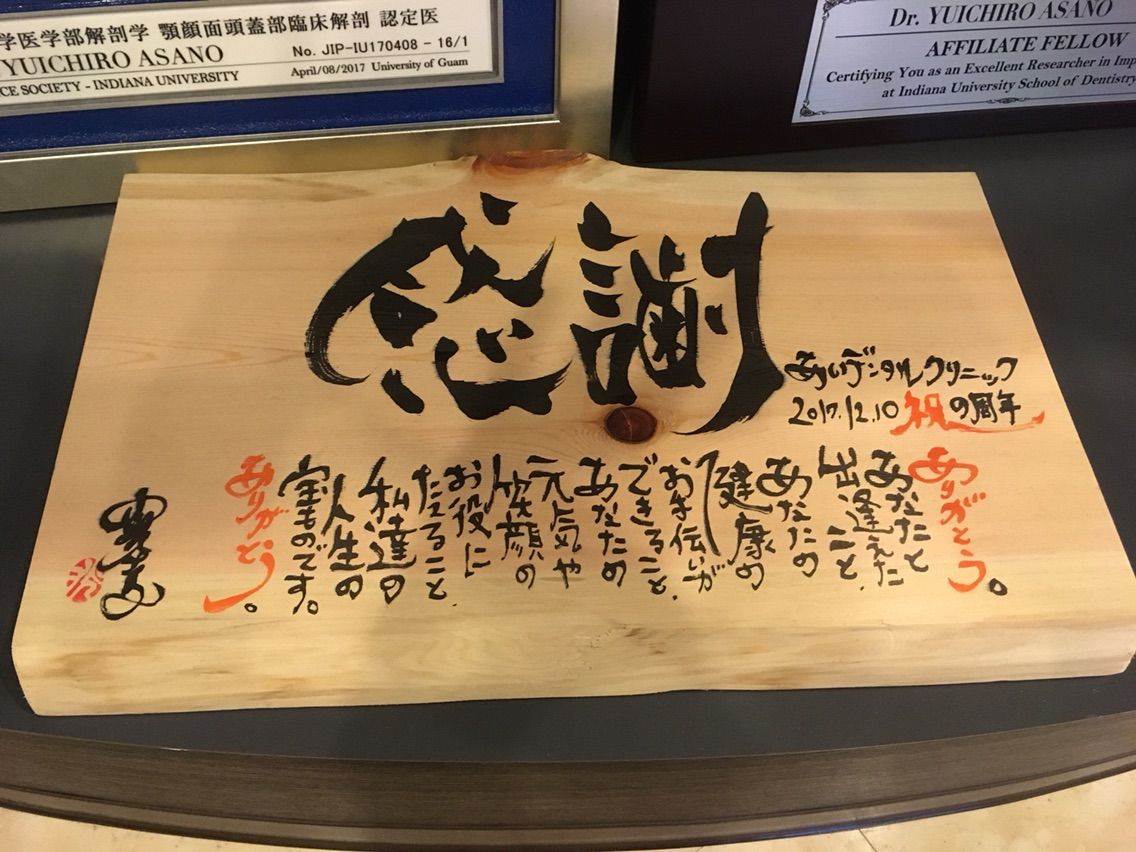 学医学部解剖学 顎顔面頭蓋部臨床解剖 認定医
YUICHIRO ASANO
No. JIP-IU170408 - 16/1
April/08/2017 University of Guam
CE SOCIETY - INDIANA UNIVERSITY
Dr. YUICHIRO ASANO
AFFILIATE FELLOW
Certifying You as an Excellent Researcher in Imp
at Indiana University School of Dentistry
感謝
あいデンタルクリニック
2017.12.10 祝の周年
ありがとう。
あなたと
出逢えた
こと、
あなたの
健康の
お手伝いが
できること、
あなたの
元気や
笑顔の
お役に
たてること
私達の
人生の
宝ものです。
ありがとう。